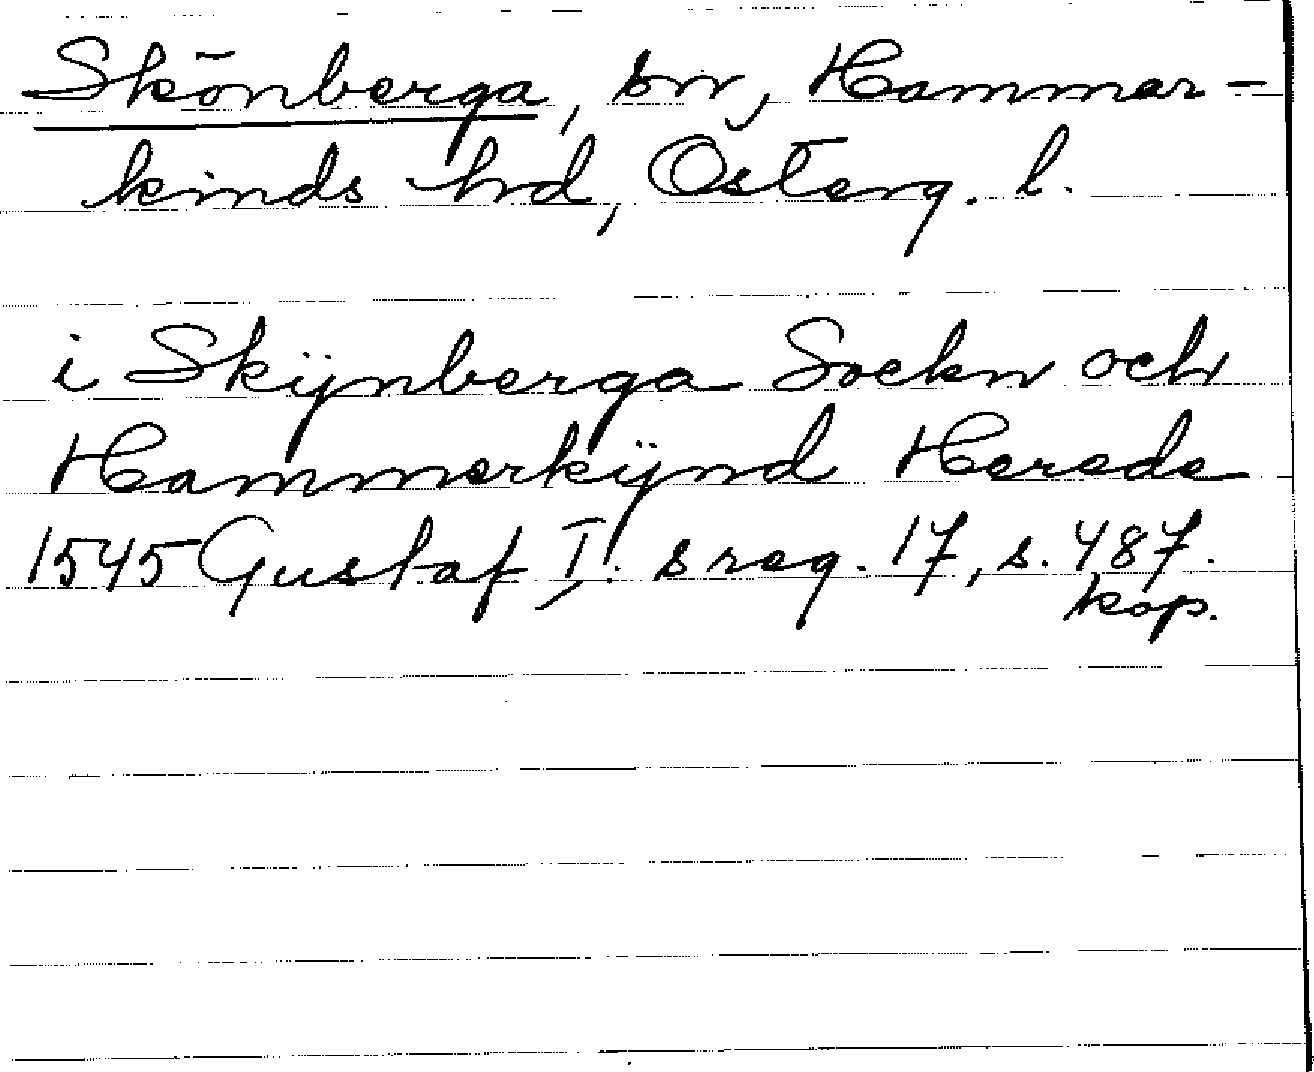 Skönberga, sn, Hammar-
kinds hd, Österg. l.
i Skÿnberga Sockn och
Hammerkÿnd Herede
1545 Gustaf I:s reg. 17, s. 487.
kop.